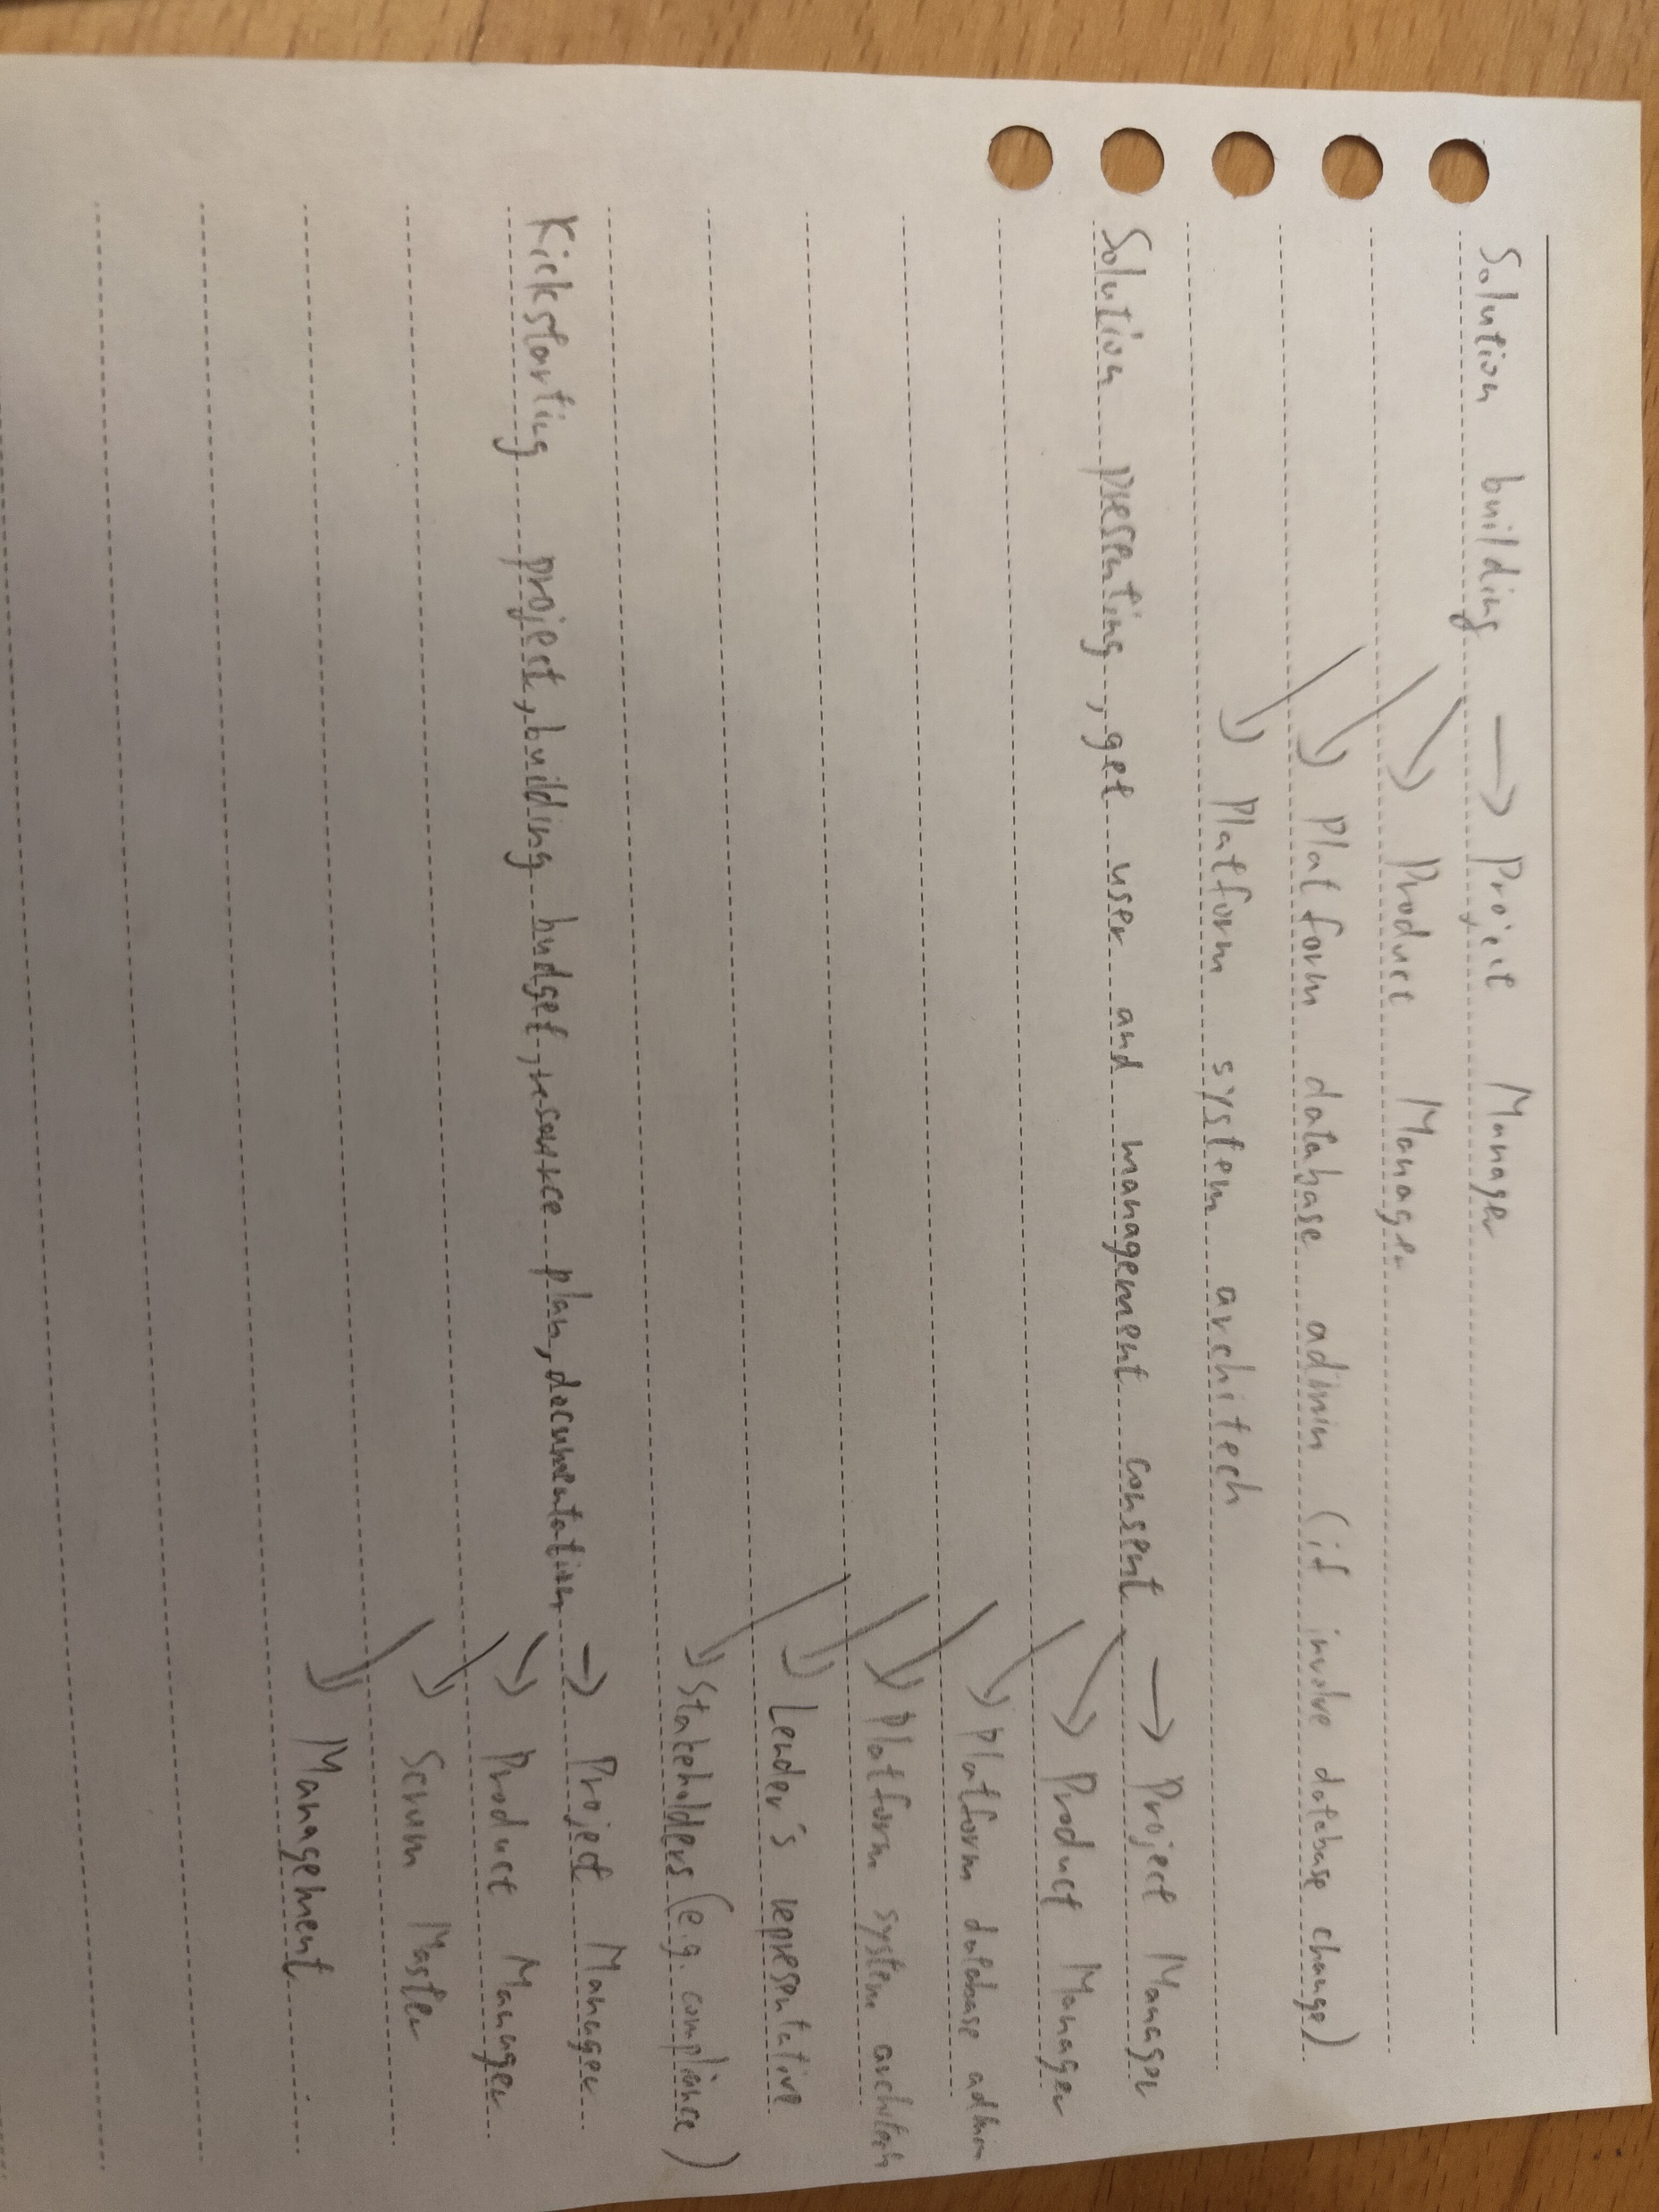 Solution building → Project Manager
→ Product Manager
→ Platform database admin (if involve database change)
→ Platform system architech
Solution presenting, get user and management consent → Project Manager
→ Product Manager
→ Platform database admin
→ Platform system architech
→ Lender's representative
→ Stakeholders (e.g. compliance)
Kickstarting project, building budget, resource plan, documentation → Project Manager
→ Product Manager
→ Scrum Master
→ Management